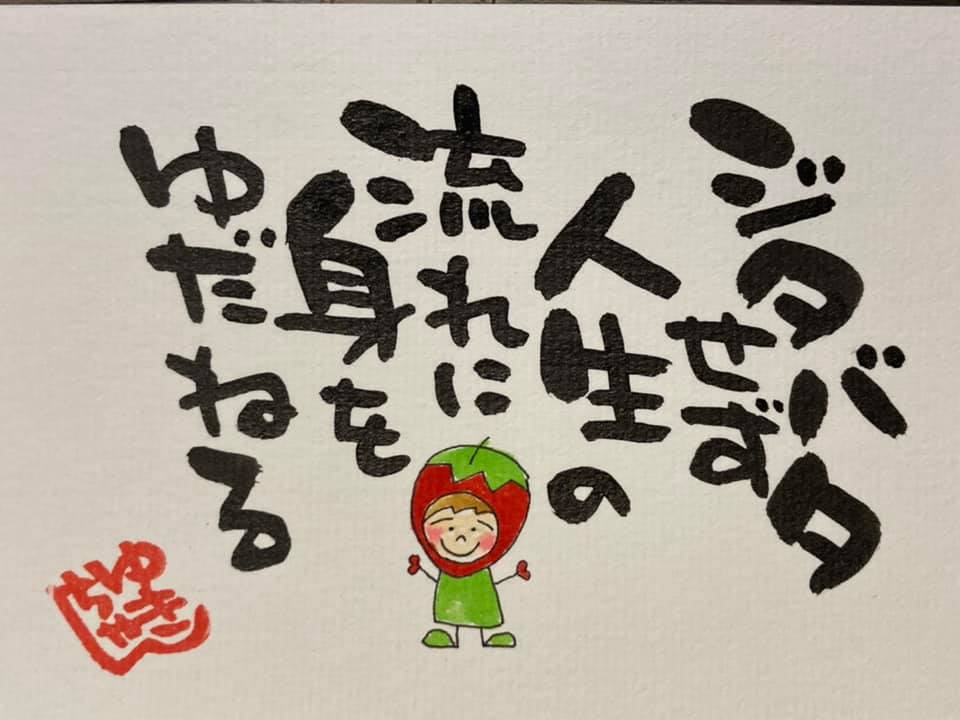 ジタバタ
せず
人生の
流れに
身を
ゆだねる
ゆき
ちゃん